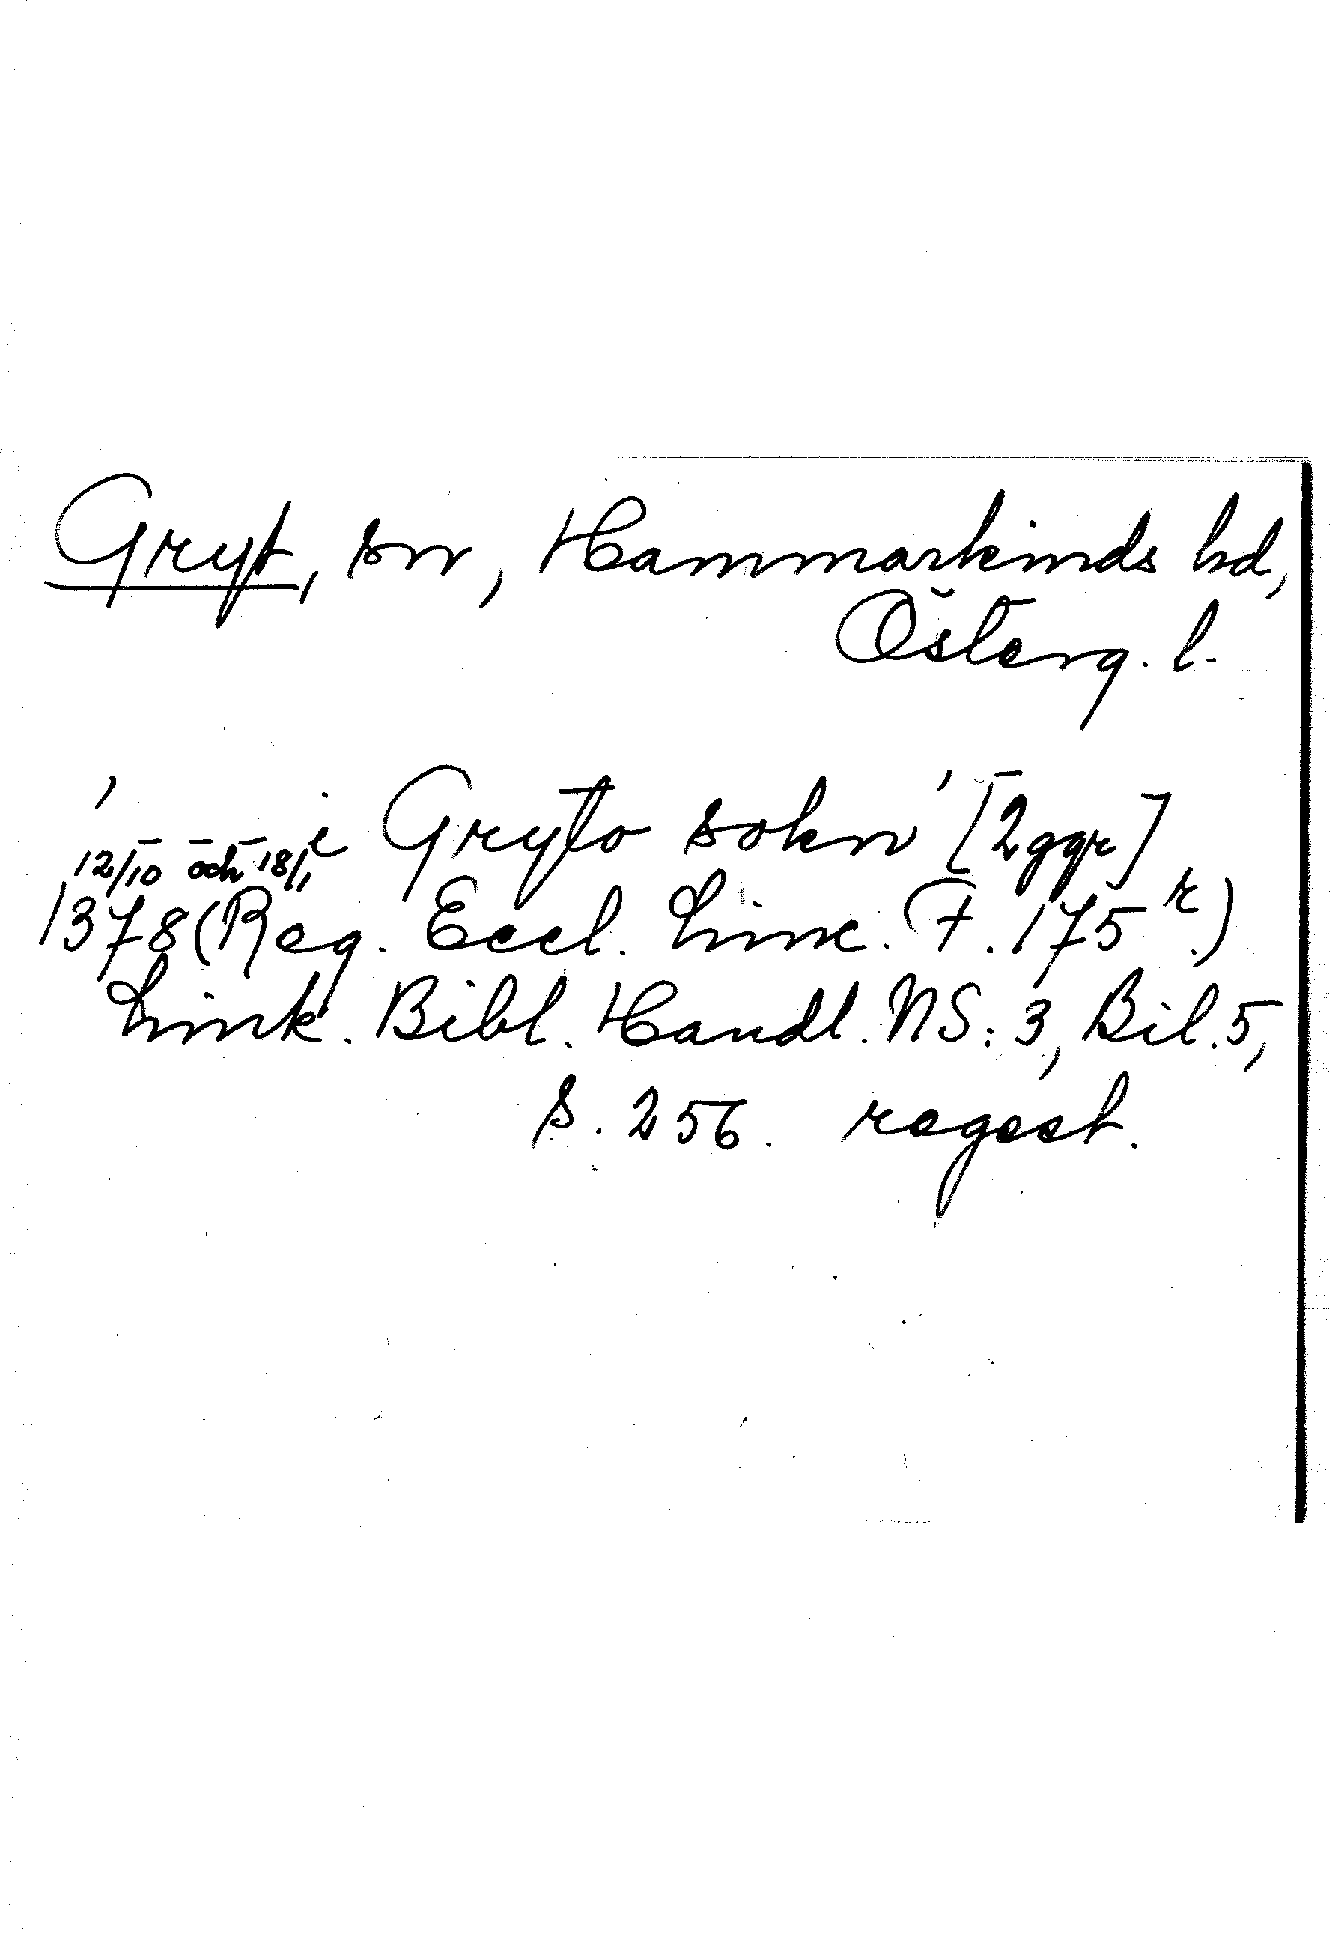 Gryt, sn, Hammarkinds hd,
Österg. l.
' i Gryto sokn' [2ggr]
12/10 och 18/1
1378 (Reg. Eccl. Linc. F. 175 r)
Link. Bibl. Handl. NS: 3, Bil. 5,
s. 256. regest.